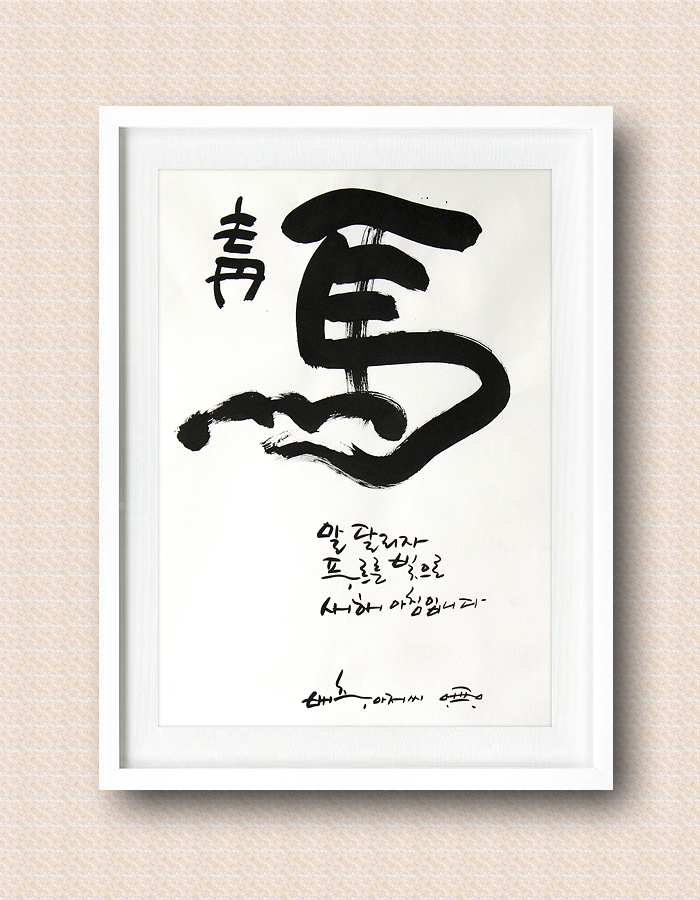 靑
馬
말 달리자
푸르른 빛으로
새해 아침입니다
배추 아저씨